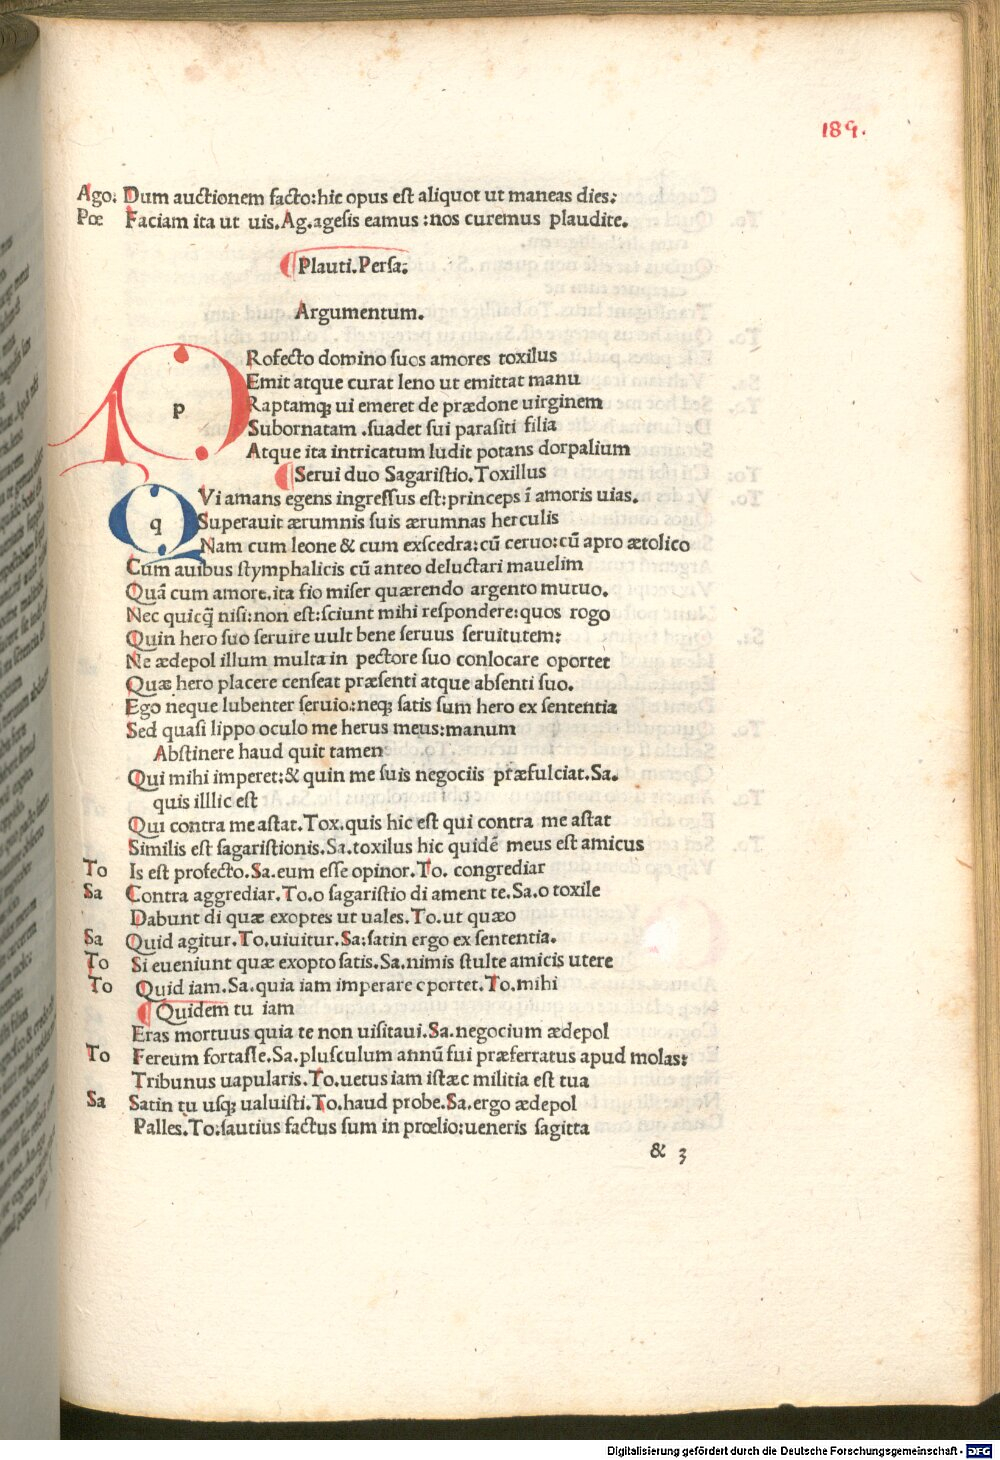 189.
Ago. Dum auctionem facto:hic opus est aliquot ut maneas dies:
Poe Faciam ita ut uis.Ag.agesis eamus:nos curemus plaudite.
Plauti.Persa.
Argumentum.
p Rofecto domino suos amores toxilus
Emit atque curat leno ut emittat manu
Raptamqꝫ ui emeret de prædone uirginem
Subornatam .suadet sui parasiti filia
Atque ita intricatum ludit potans dorpalium
Serui duo Sagaristio.Toxillus
q Vi amans egens ingressus est:princeps ī amoris uias.
Superauit ærumnis suis ærumnas herculis
Nam cum leone & cum exscedra:cū ceruo:cū apro ætolico
Cum auibus stymphalicis cū anteo deluctari mauelim
Quā cum amore.ita fio miser quærendo argento mutuo.
Nec quicq̄ nisi:non est:sciunt mihi respondere:quos rogo
Quin hero suo seruire uult bene seruus seruitutem:
Ne ædepol illum multa in pectore suo conlocare oportet
Quæ hero placere censeat præsenti atque absenti suo.
Ego neque lubenter seruio:neqꝫ satis sum hero ex sententia
Sed quasi lippo oculo me herus meus:manum
Abstinere haud quit tamen
Qui mihi imperet:& quin me suis negociis præfulciat.Sa.
quis illlic est
Qui contra me astat.Tox.quis hic est qui contra me astat
Similis est sagaristionis.Sa.toxilus hic quidē meus est amicus
To Is est profecto.Sa.eum esse opinor.To. congrediar
Sa Contra aggrediar.To.o sagaristio di ament te.Sa.o toxile
Dabunt di quæ exoptes ut uales.To.ut quæo
Sa Quid agitur.To.uiuitur.Sa:satin ergo ex sententia.
To Si eueniunt quæ exopto satis.Sa.nimis stulte amicis utere
To Quid iam.Sa.quia iam imperare oportet.To.mihi
Quidem tu iam
Eras mortuus quia te non uisitaui.Sa.negocium ædepol
To Fereum fortasse.Sa.plusculum annū fui præferratus apud molas:
Tribunus uapularis.To.uetus iam istæc militia est tua
Sa Satin tu usqꝫ ualuisti.To.haud probe.Sa.ergo ædepol
Palles.To:sautius factus sum in prœlio:ueneris sagitta
& 3
Digitalisierung gefördert durch die Deutsche Forschungsgemeinschaft - DFG